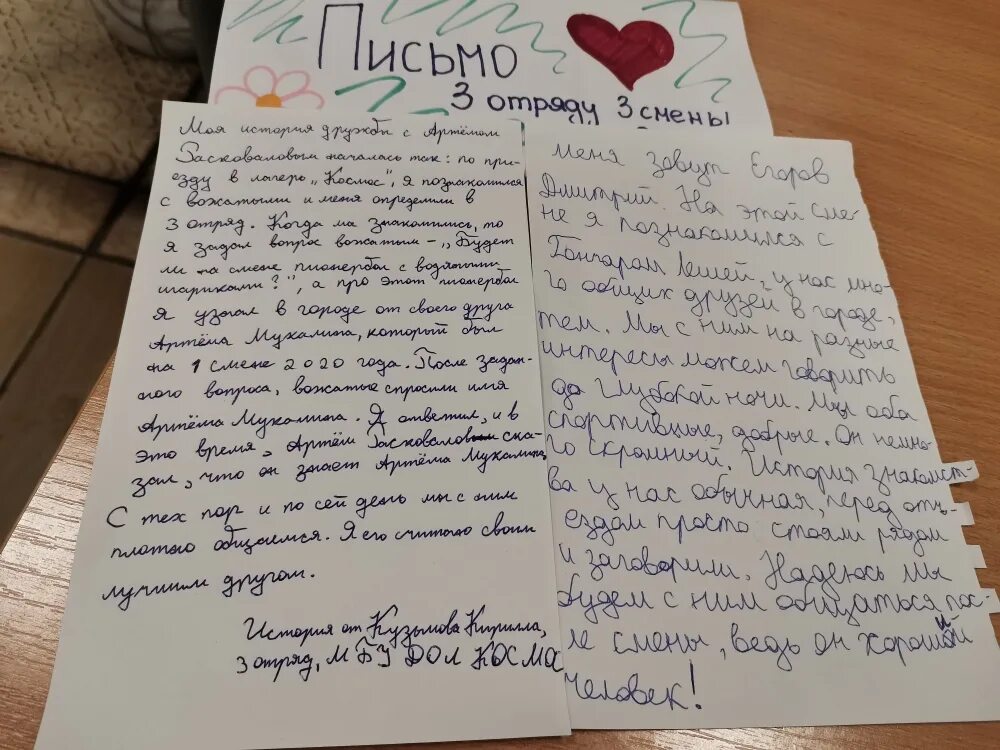 Письмо
3 отряду 3 смены
Моя история дружбы с Артёмом
Засковаловым началась так: по при-
езду в лагерь „Космос", я познакомился
с вожатыми и меня определили в
3 отряд. Когда мы знакомились, то
я задал вопрос вожатым – „Будет
ли на смене пионербол с водяными
шариками?", а про этот пионербол
я узнал в городе от своего друга
Артёма Мухалина, который был
на 1 смене 2020 года. После задан-
ного вопроса, вожатые спросили имя
Артёма Мухалина. Я ответил, и в
это время, Артём Засковалов ска-
зал, что он знает Артёма Мухалина,
С тех пор и по сей день мы с ним
плотно общаемся. Я его считаю своим
лучшим другом.
История от Кузьмова Кирилла,
3 отряд, МБУ ДОЛ КОСМОС
Меня зовут Егоров
Дмитрий. На этой сме-
не я познакомился с
Гончаром Лёшей, у нас мно-
го общих друзей в городе,
тем. Мы с ним на разные
интересы можем говорить
до глубокой ночи. Мы оба
спортивные, добрые. Он немно-
го скромный. История знакомст-
ва у нас обычная, перед отъ-
ездом просто стояли рядом
и заговорили. Надеюсь мы
будем с ним общаться пос-
ле смены, ведь он хороший
человек!